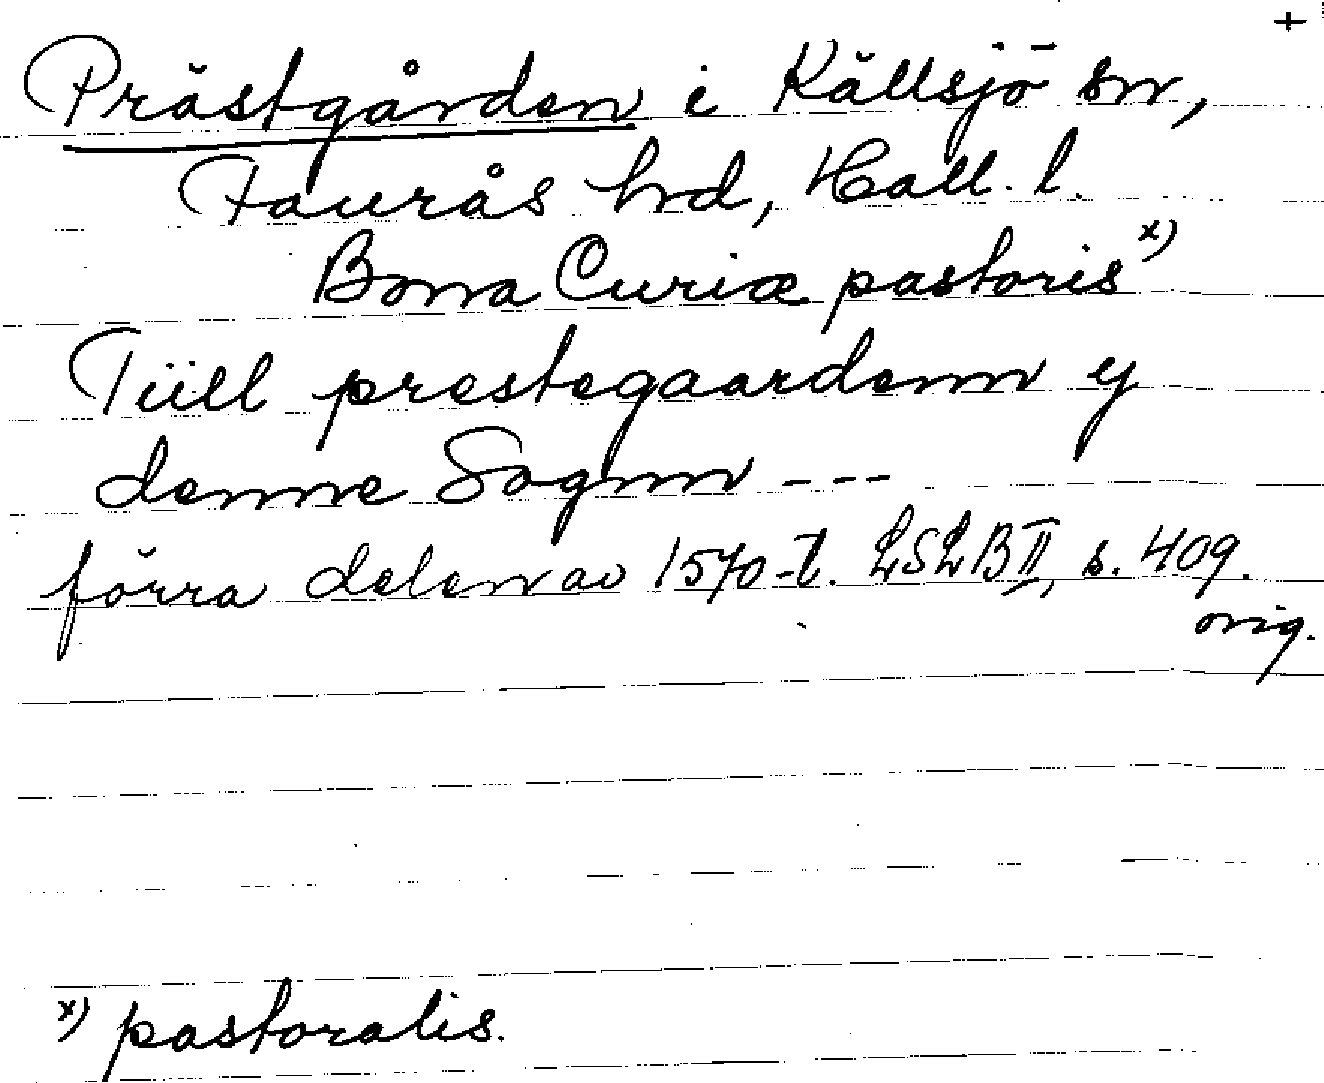 +
Prästgården i Källsjö sn,
Faurås hrd, Hall. l.
Bona Curiæ pastoris x)
Tiill prestegaardenn y
denne Sognn ---
förra delen av 1570-t. LSLB II, s. 409.
orig.
x) pastoralis.